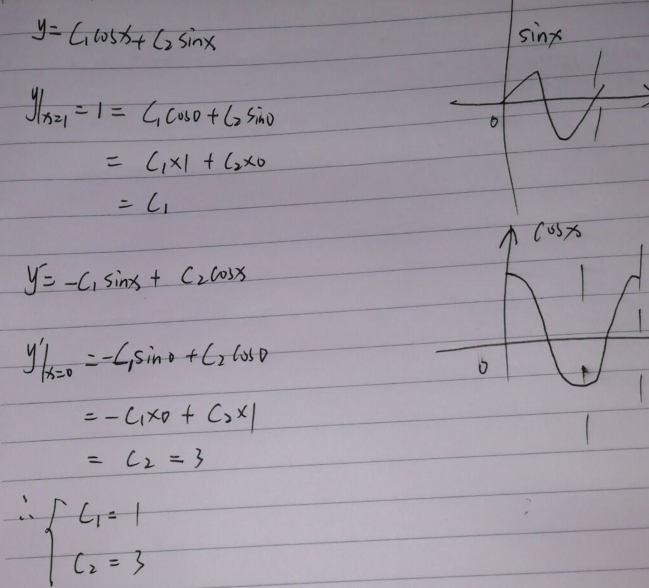 y = C₁cosx + C₂ sinx
y|x=1 = 1 = C₁ cos0 + C₂ sin0
= C₁×1 + C₂×0
= C₁
y' = -C₁ sinx + C₂cosx
y'|x=0 = -C₁sin0 + C₂ cos0
= -C₁×0 + C₂×1
= C₂ = 3
∴ { C₁ = 1
C₂ = 3
sinx
0
cosx
0